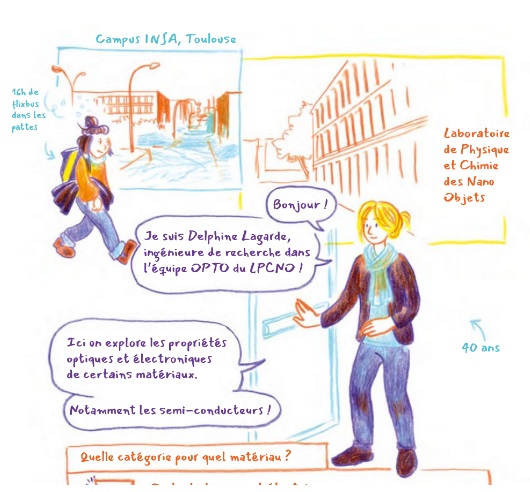 Campus INSA, Toulouse
16h de
flixbus
dans les
pattes
Laboratoire
de Physique
et Chimie
des Nano
Objets
Bonjour !
Je suis Delphine Lagarde,
ingénieure de recherche dans
l'équipe OPTO du LPCNO !
40 ans
Ici on explore les propriétés
optiques et électroniques
de certains matériaux.
Notamment les semi-conducteurs !
Quelle catégorie pour quel matériau ?